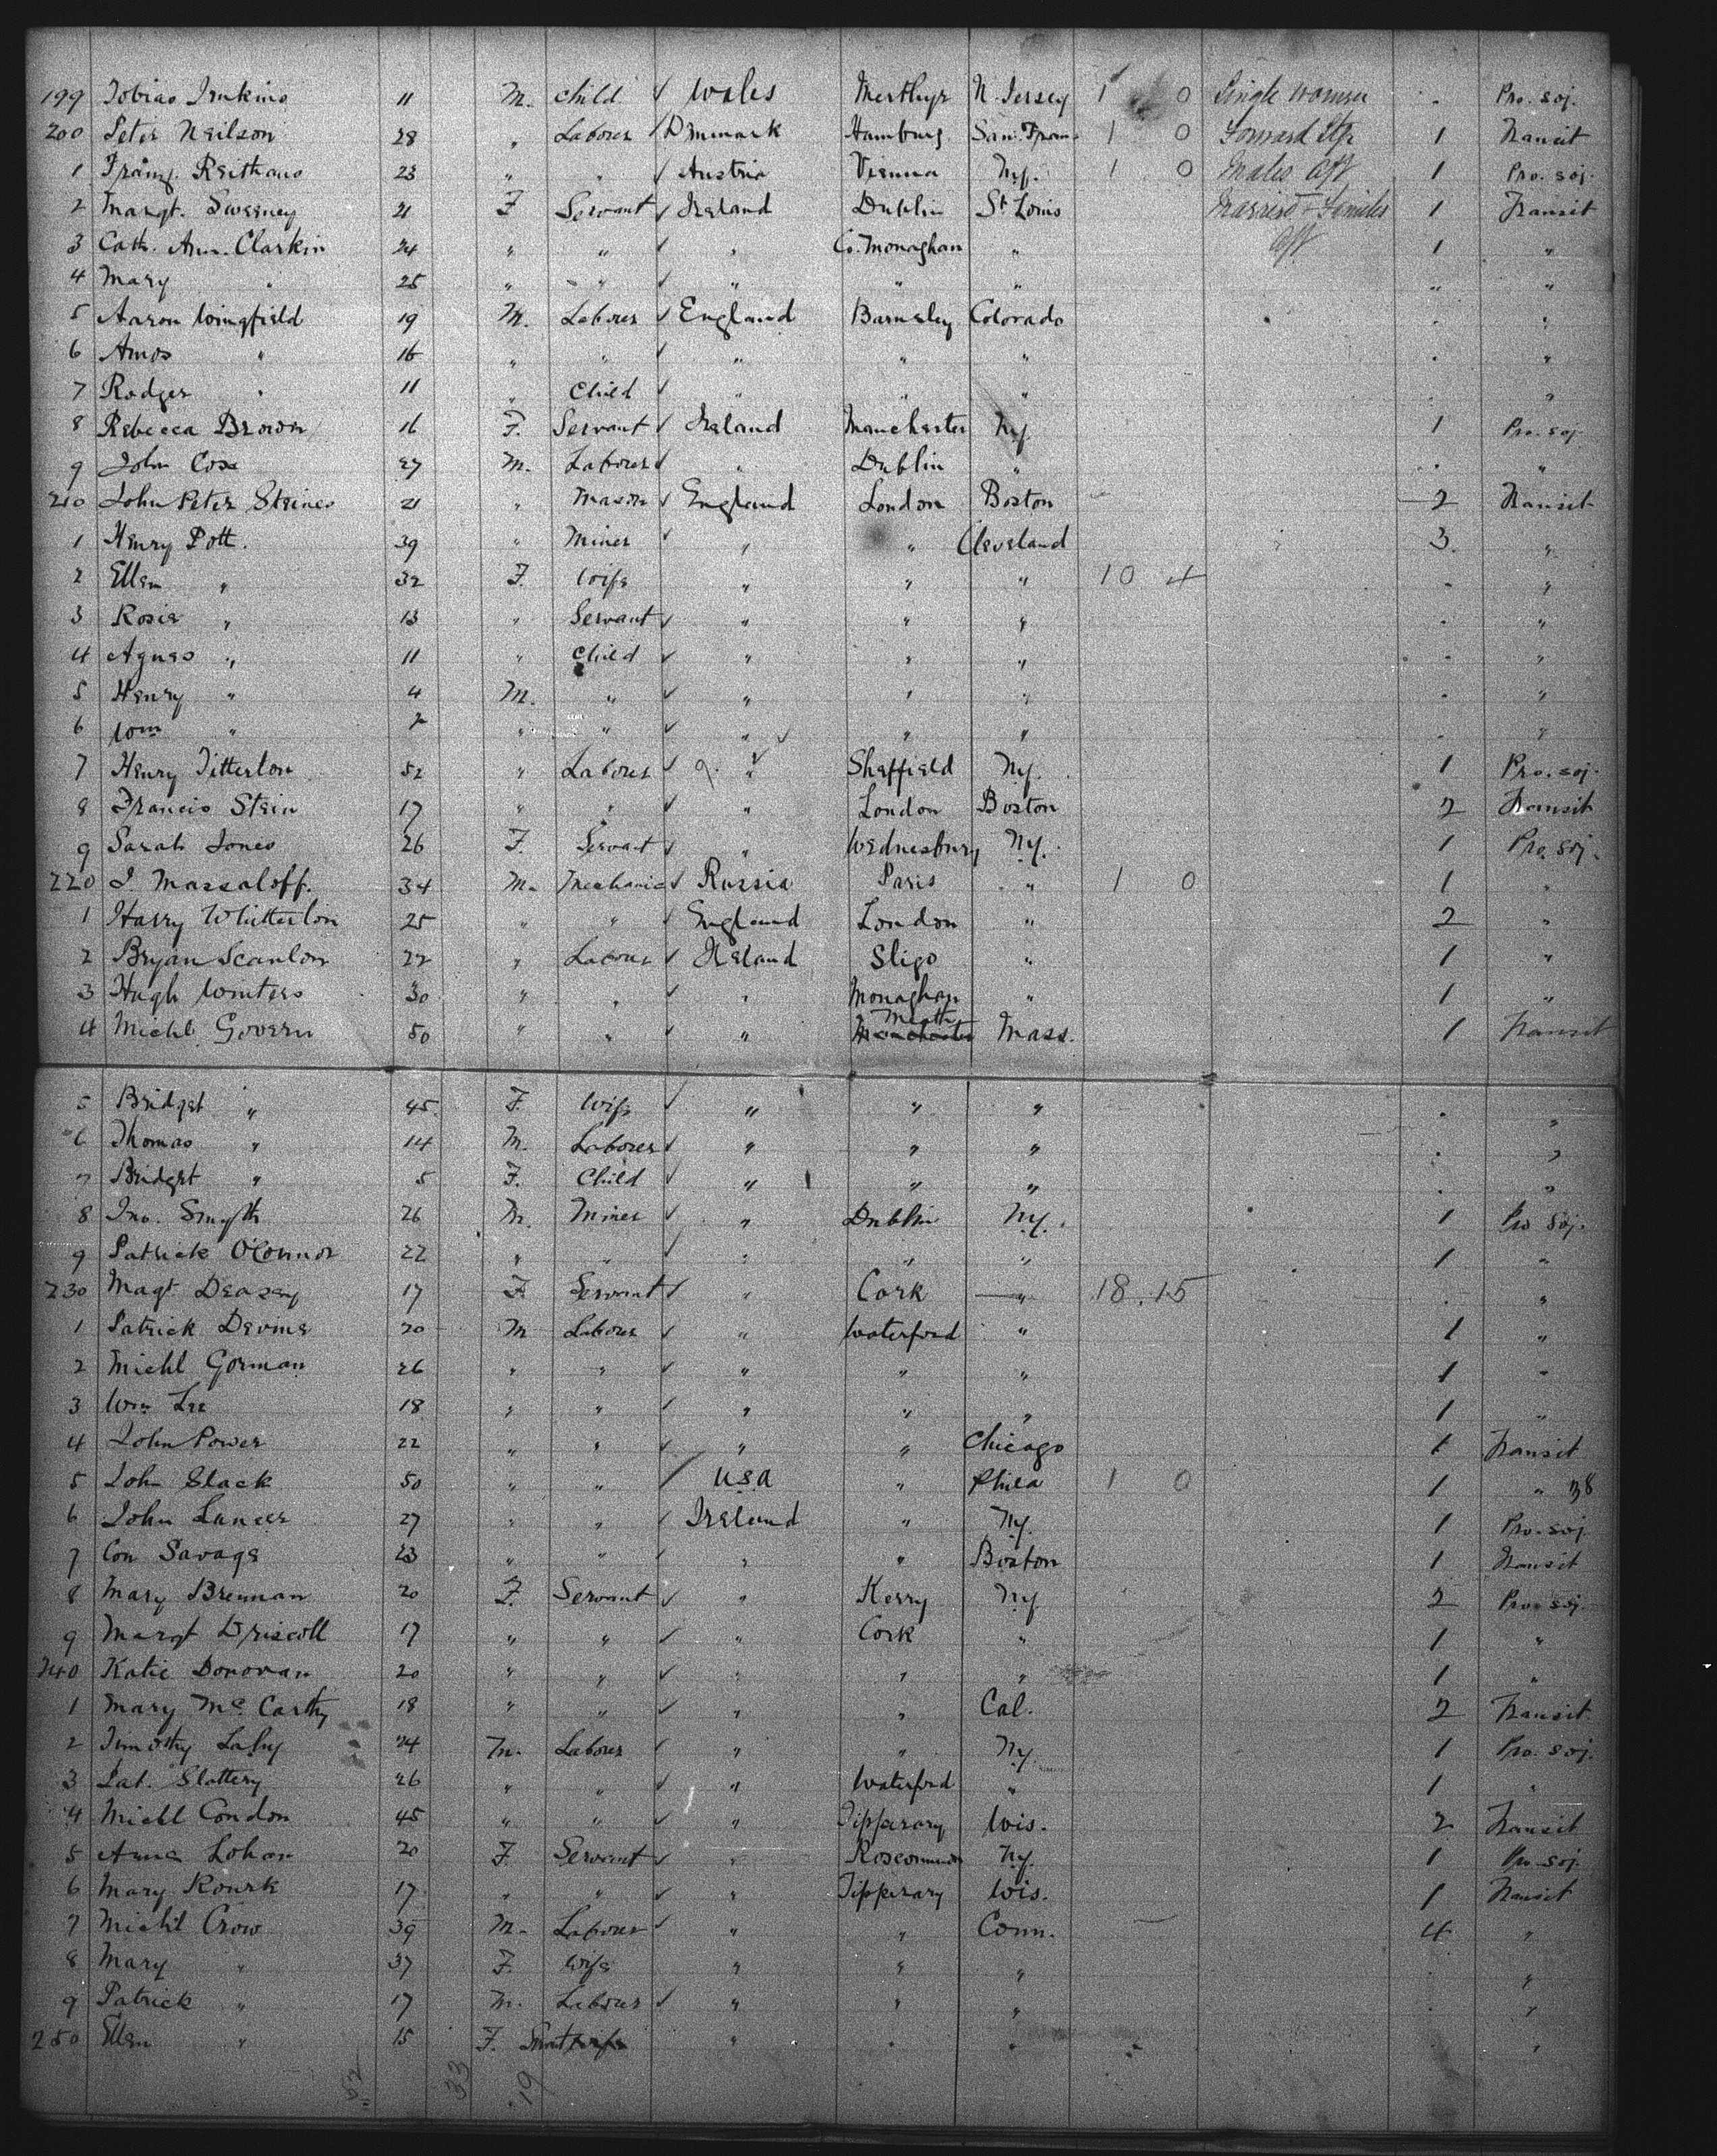 199 Tobias Jenkins 11 M. Child ✓ Wales Merthyr N. Jersey 1 0 Single women . Pro. soj.
200 Peter Neilson 28 " Labourer ✓ Denmark Hamburg San. Fran. 1 0 Forward Stp 1 Transit
1 Franz. Reithaus 23 " " ✓ Austria Vienna Ny. 1 0 Males Aft 1 Pro. soj.
2 Margt. Sweeney 21 F Servant ✓ Ireland Dublin St Louis Married + Families 1 Transit
3 Cath. Ann. Clarkin 24 " " ✓ " Co. Monaghan " Aft 1 "
4 Mary " 25 " " ✓ " " " " "
5 Aaron Wingfield 19 M. Labourer ✓ England Barnsley Colorado . "
6 Amos " 16 " " ✓ " " " . "
7 Rodger " 11 " Child ✓ " " " "
8 Rebecca Brown 16 F. Servant ✓ Ireland Manchester Ny 1 Pro. soj.
9 John Cox 27 M. Labourer ✓ " Dublin " . "
210 John Peter Steines 21 " Mason ✓ England London Boston 2 Transit
1 Henry Pott. 39 " Miner ✓ " " Cleveland 3. "
2 Ellen " 32 F. Wife " " " 10 4 . "
3 Rosie " 13 " Servant ✓ " " " . "
4 Agnes " 11 " Child ✓ " " " . "
5 Henry " 4 M. " ✓ " " " . "
6 Wm " 2 " " ✓ " ✓ " " . "
7 Henry Titterton 52 " Labourer ✓ " Sheffield Ny. 1 Pro. soj.
8 Francis Stein 17 " " ✓ " London Boston 2 Transit
9 Sarah Jones 26 F. Servant ✓ " Wednesbury Ny. 1 Pro. soj.
220 J. Massaloff. 34 M. Mechanic ✓ Russia Paris " 1 0 1 "
1 Harry Whitterton 25 " " ✓ England London " 2 "
2 Bryan Scanlon 22 " Labour ✓ Ireland Sligo " 1 "
3 Hugh Winters 30 " " ✓ " Monaghan " 1 "
4 Michl. Govern 50 " " ✓ " Meath Manchester Mass. 1 Transit
5 Bridget " 45 F. Wife ✓ " " " . "
6 Thomas " 14 M. Labourer ✓ " " " . "
7 Bridget " 5 F. Child ✓ " " " . "
8 Jno. Smyth 26 M. Miner ✓ " Dublin Ny. 1 Pro soj.
9 Patrick O'Connor 22 " " ✓ " " " 1 "
230 Magt Deasey 17 F. Servant ✓ " Cork " 18.15 . "
1 Patrick Devine 20 M Labour ✓ " Waterford " 1 "
2 Michl Gorman 26 " " ✓ " " " 1 "
3 Wm Lee 18 " " ✓ " " " 1 "
4 John Power 22 " " ✓ " " Chicago 1 Transit
5 John Slack 50 " " ✓ USA " Phila 1 0 1 " 38
6 John Lancer 27 " " ✓ Ireland " Ny. 1 Pro. soj
7 Con Savage 23 " " ✓ " " Boston 1 Transit
8 Mary Brennan 20 F. Servant ✓ " Kerry Ny 2 Pro. soj.
9 Margt Driscoll 17 " " ✓ " Cork " 1 "
240 Katie Donovan 20 " " ✓ " " " 1 "
1 Mary Mc Carthy 18 " " ✓ " " Cal. 2 Transit
2 Timothy Lahy 24 M. Labour ✓ " " Ny. 1 Pro. soj.
3 Pat. Slattery 26 " " ✓ " Waterford " 1 "
4 Michl Condon 45 " " ✓ " Tipperary Wis. 2 Transit
5 Anne Lohan 20 F. Servant ✓ " Roscommon Ny. 1 Pro soj
6 Mary Rourk 17 " " ✓ " Tipperary Wis. 1 Transit
7 Michl Crow 39 M. Labour ✓ " " Conn. 4 "
8 Mary " 37 F. Wife " " " . "
9 Patrick " 17 M. Labour ✓ " " " . "
250 Ellen " 15 F. Servt " " " "
52 33 19